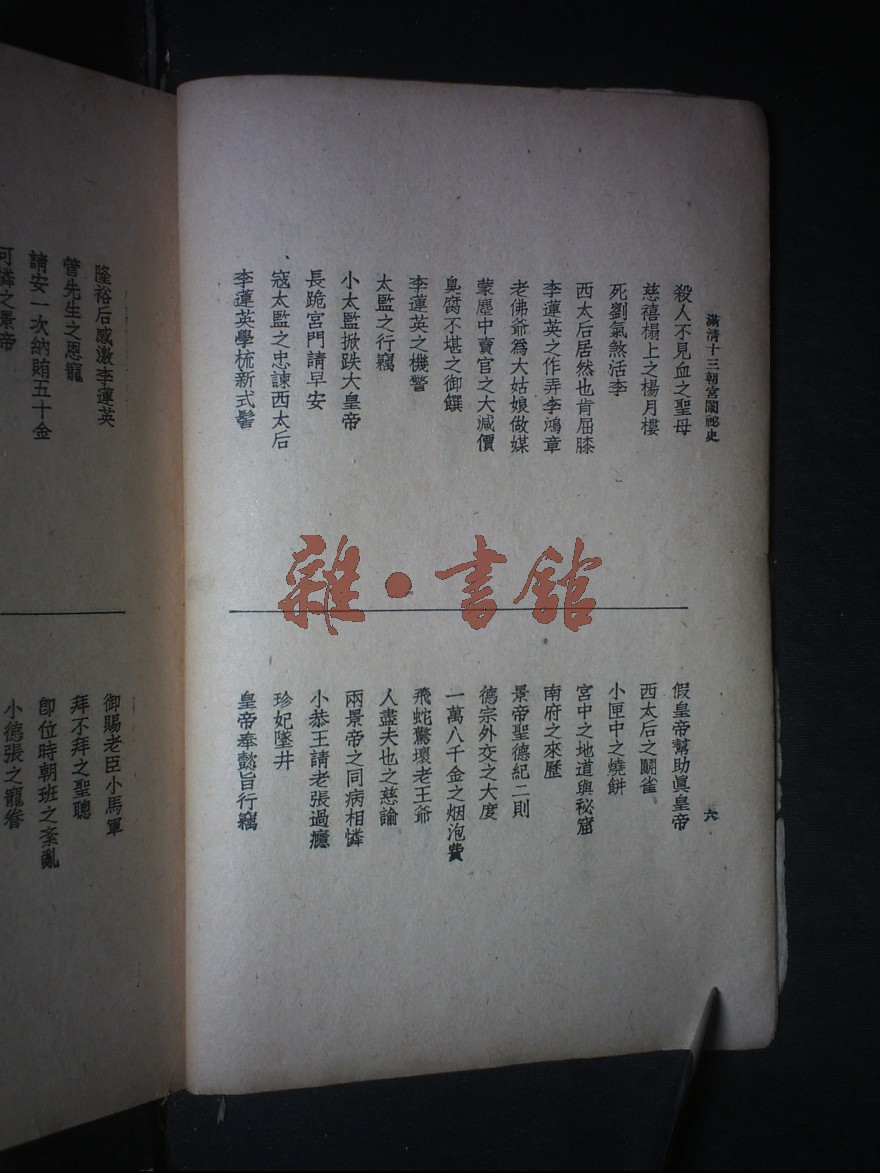 滿淸十三朝宮闈祕史
六
殺人不見血之聖母
慈禧榻上之楊月樓
死劉氣煞活李
西太后居然也肯屈膝
李蓮英之作弄李鴻章
老佛爺爲大姑娘做媒
蒙塵中賣官之大減價
臭腐不堪之御饌
李蓮英之機警
太監之行竊
小太監掀跌大皇帝
長跪宮門請早安
寇太監之忠諫西太后
李蓮英學梳新式髻
假皇帝幫助眞皇帝
西太后之鬬雀
小匣中之燒餅
宮中之地道與祕窟
南府之來歷
景帝聖德紀二則
德宗外交之大度
一萬八千金之烟泡費
飛蛇驚壞老王爺
人盡夫也之慈諭
兩景帝之同病相憐
小恭王請老張過癮
珍妃墜井
皇帝奉懿旨行竊
隆裕后感激李蓮英
管先生之恩寵
請安一次納賄五十金
可憐之景帝
御賜老臣小馬軍
拜不拜之聖聰
卽位時朝班之紊亂
小德張之寵眷
雜·書館